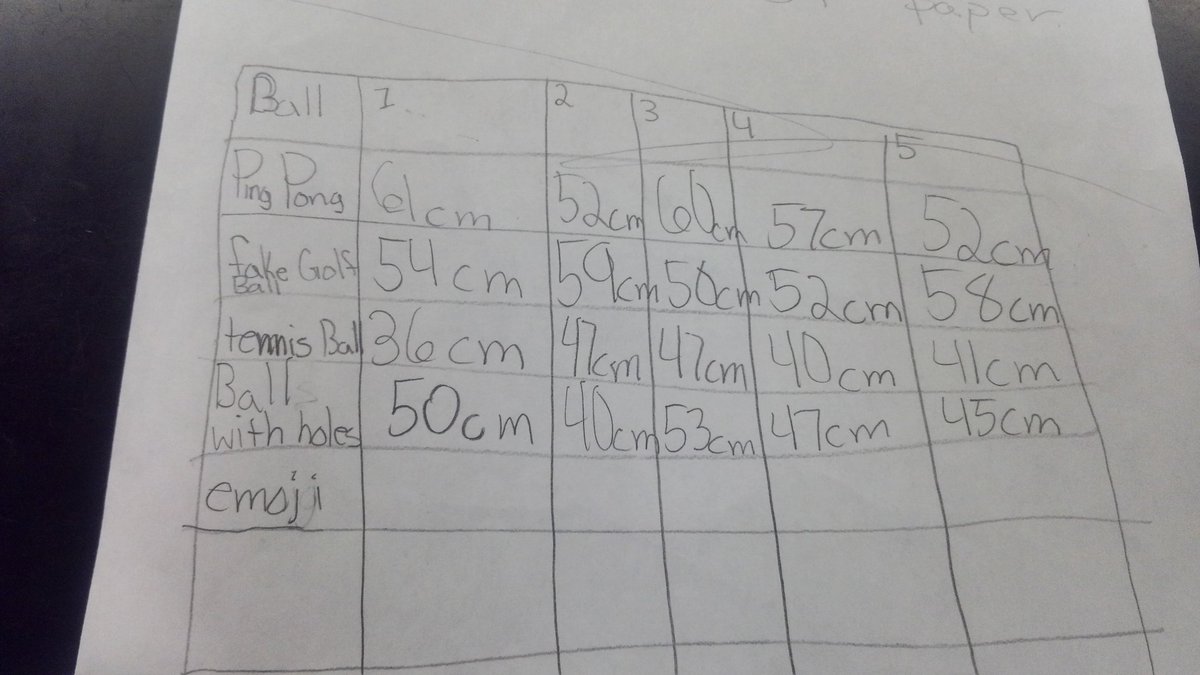 paper.
Ball 1. 2 3 4 5
Ping Pong 61cm 52cm 60cm 57cm 52cm
fake Golf Ball 54cm 59cm 50cm 52cm 58cm
tennis Ball 36cm 47cm 47cm 40cm 41cm
Ball with holes 50cm 40cm 53cm 47cm 45cm
emoji